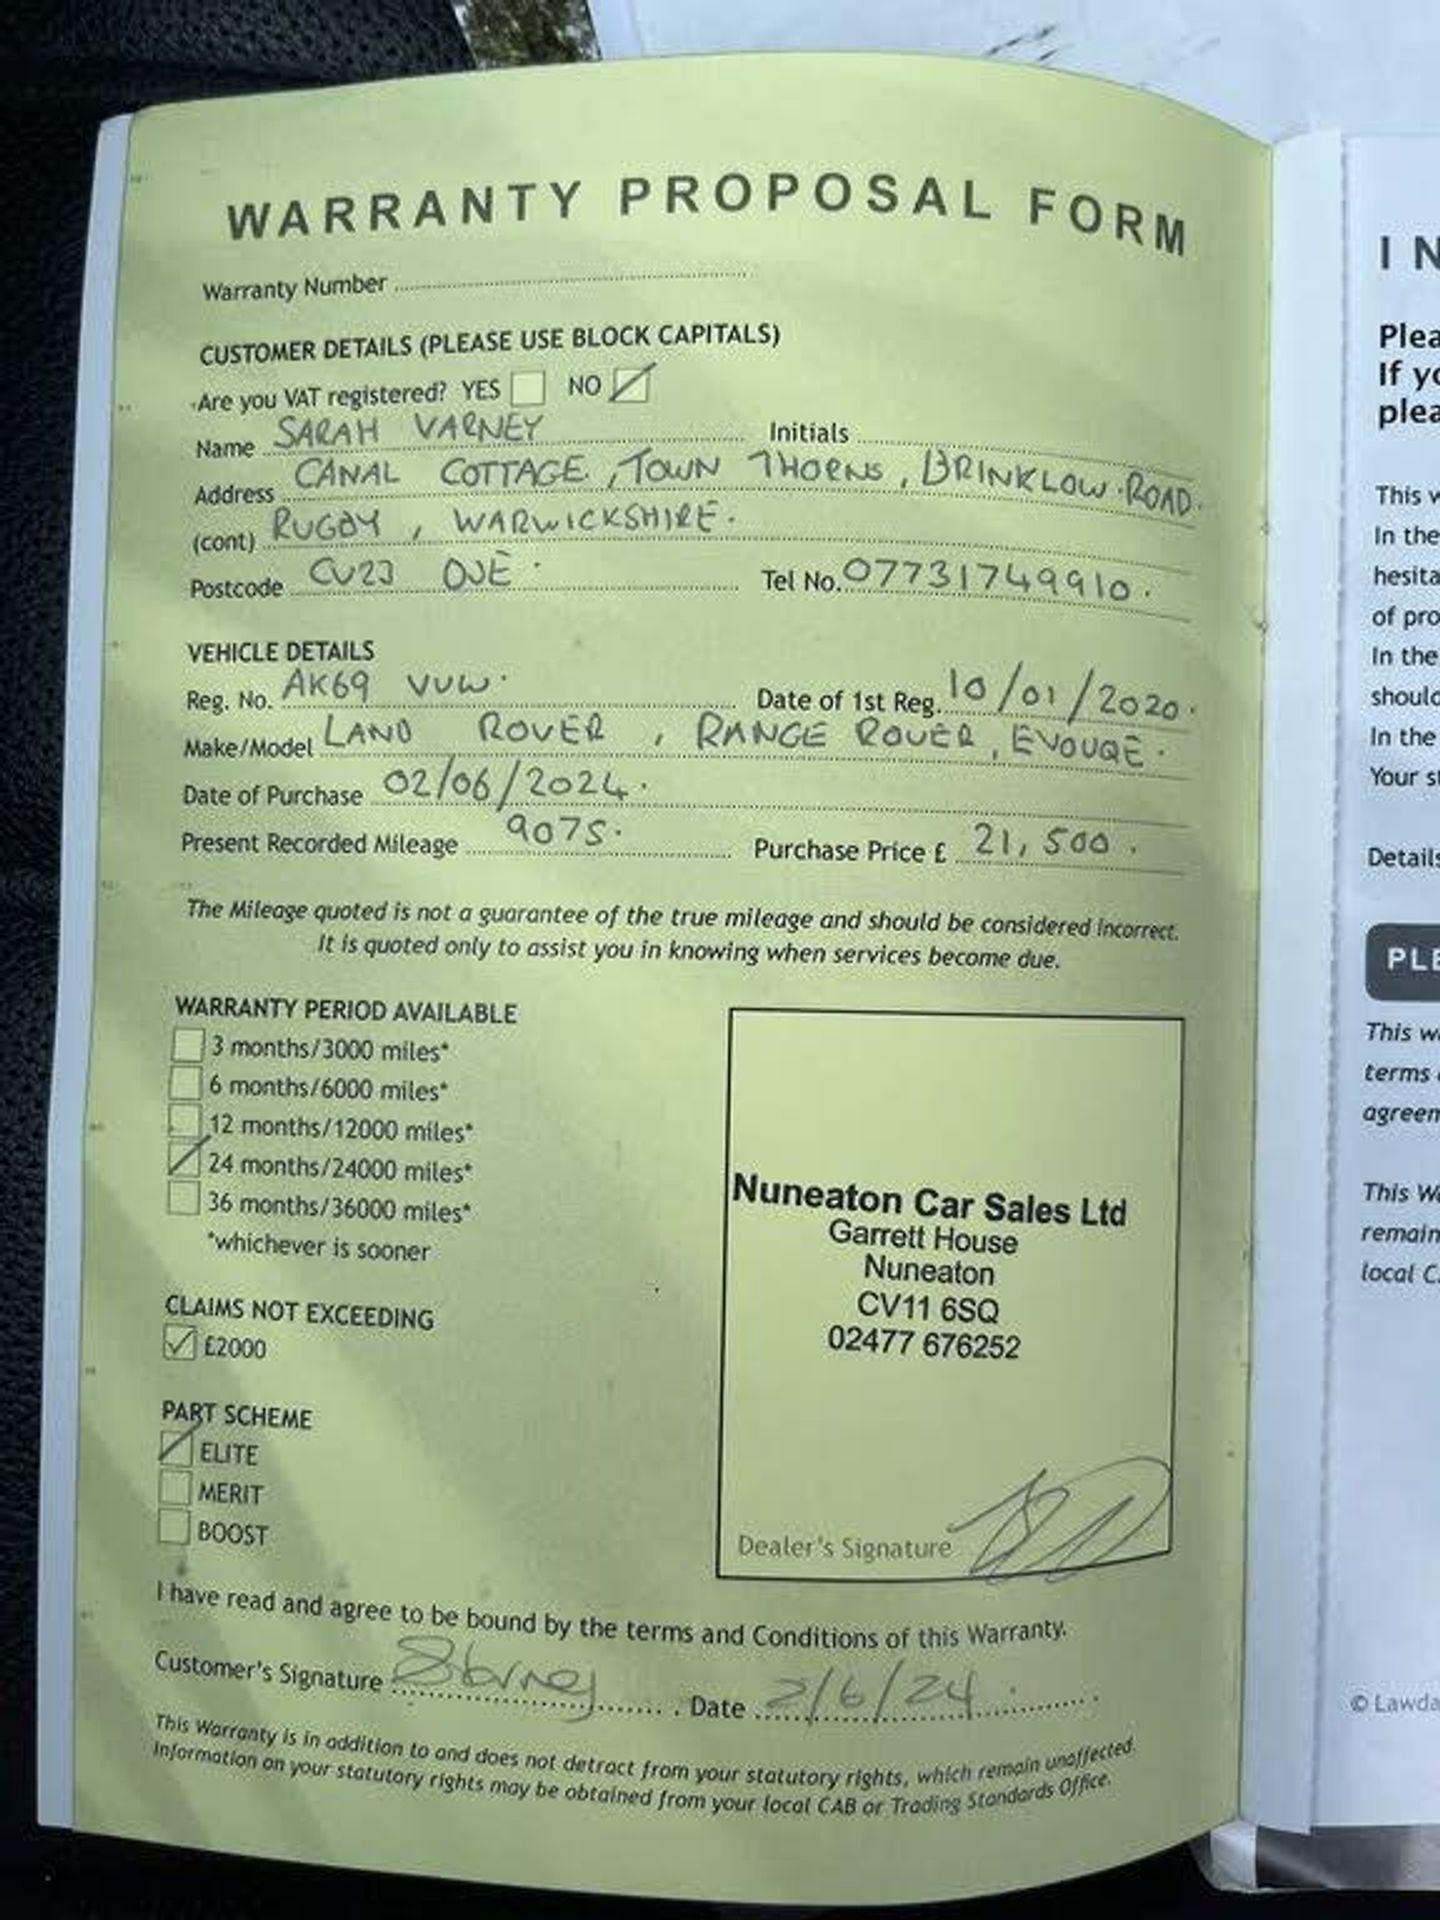 WARRANTY PROPOSAL FORM
Warranty Number
CUSTOMER DETAILS (PLEASE USE BLOCK CAPITALS)
Are you VAT registered? YES NO
Name SARAH VARNEY Initials
Address CANAL COTTAGE, TOWN THORNS, BRINKLOW ROAD.
(cont) RUGBY, WARWICKSHIRE.
Postcode CV23 0JE. Tel No. 07731749910.
VEHICLE DETAILS
Reg. No. AK69 VUW. Date of 1st Reg. 10/01/2020.
Make/Model LAND ROVER, RANGE ROVER, EVOUQE.
Date of Purchase 02/06/2024.
Present Recorded Mileage 9075. Purchase Price £ 21,500.
The Mileage quoted is not a guarantee of the true mileage and should be considered incorrect.
It is quoted only to assist you in knowing when services become due.
WARRANTY PERIOD AVAILABLE
3 months/3000 miles*
6 months/6000 miles*
12 months/12000 miles*
24 months/24000 miles*
36 months/36000 miles*
*whichever is sooner
CLAIMS NOT EXCEEDING
£2000
PART SCHEME
ELITE
MERIT
BOOST
Nuneaton Car Sales Ltd
Garrett House
Nuneaton
CV11 6SQ
02477 676252
Dealer's Signature
I have read and agree to be bound by the terms and Conditions of this Warranty.
Customer's Signature Date 2/6/24
This Warranty is in addition to and does not detract from your statutory rights, which remain unaffected.
Information on your statutory rights may be obtained from your local CAB or Trading Standards Office.
I N
Plea
If yo
plea
This w
In the
hesita
of pro
In the
should
In the
Your st
Details
PLE
This w
terms
agreem
This Wa
remain
local C
© Lawda